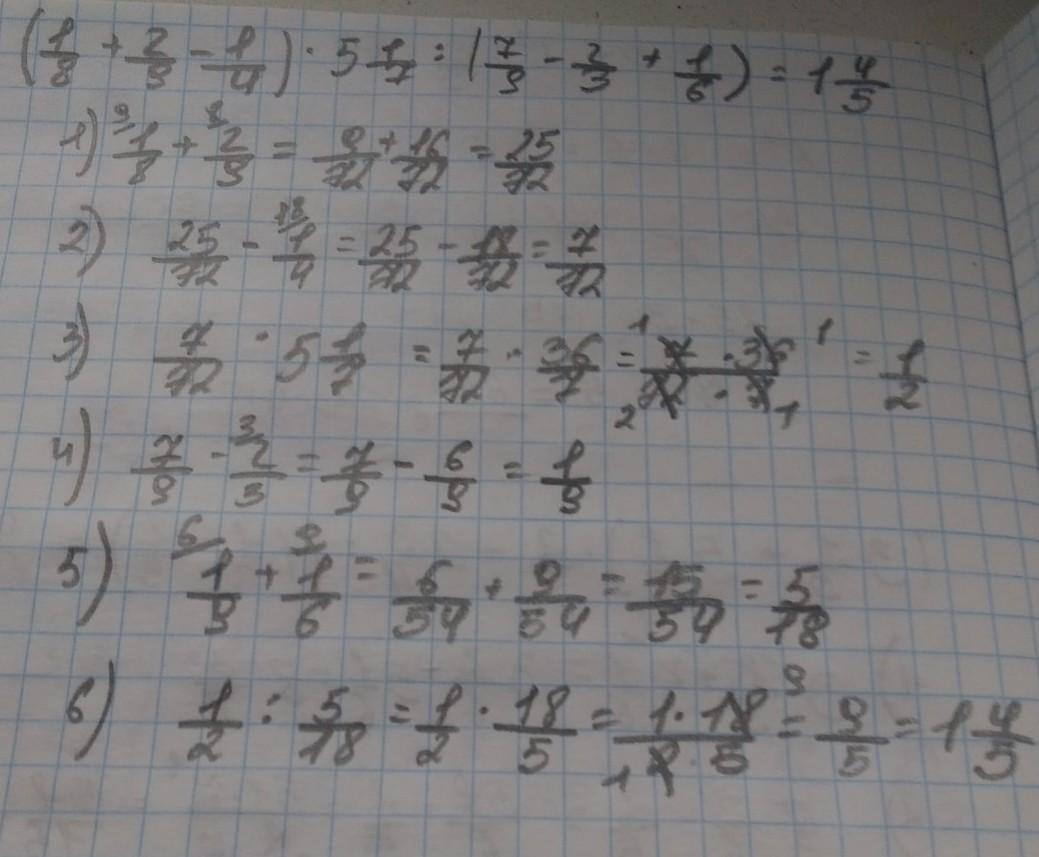 (1/8 + 2/9 - 1/4) · 5 1/7 : (7/9 - 2/3 + 1/6) = 1 4/5
1) 9/ 1/8 + 8/ 2/9 = 9/72 + 16/72 = 25/72
2) 25/72 - 18/ 1/4 = 25/72 - 18/72 = 7/72
3) 7/72 · 5 1/7 = 7/72 · 36/7 = 1 7 · 36 1 / 2 72 · 7 1 = 1/2
4) 7/9 - 3/ 2/3 = 7/9 - 6/9 = 1/9
5) 6/ 1/9 + 9/ 1/6 = 6/54 + 9/54 = 15/54 = 5/18
6) 1/2 : 5/18 = 1/2 · 18/5 = 1 · 18 9 / 1 2 · 5 = 9/5 = 1 4/5